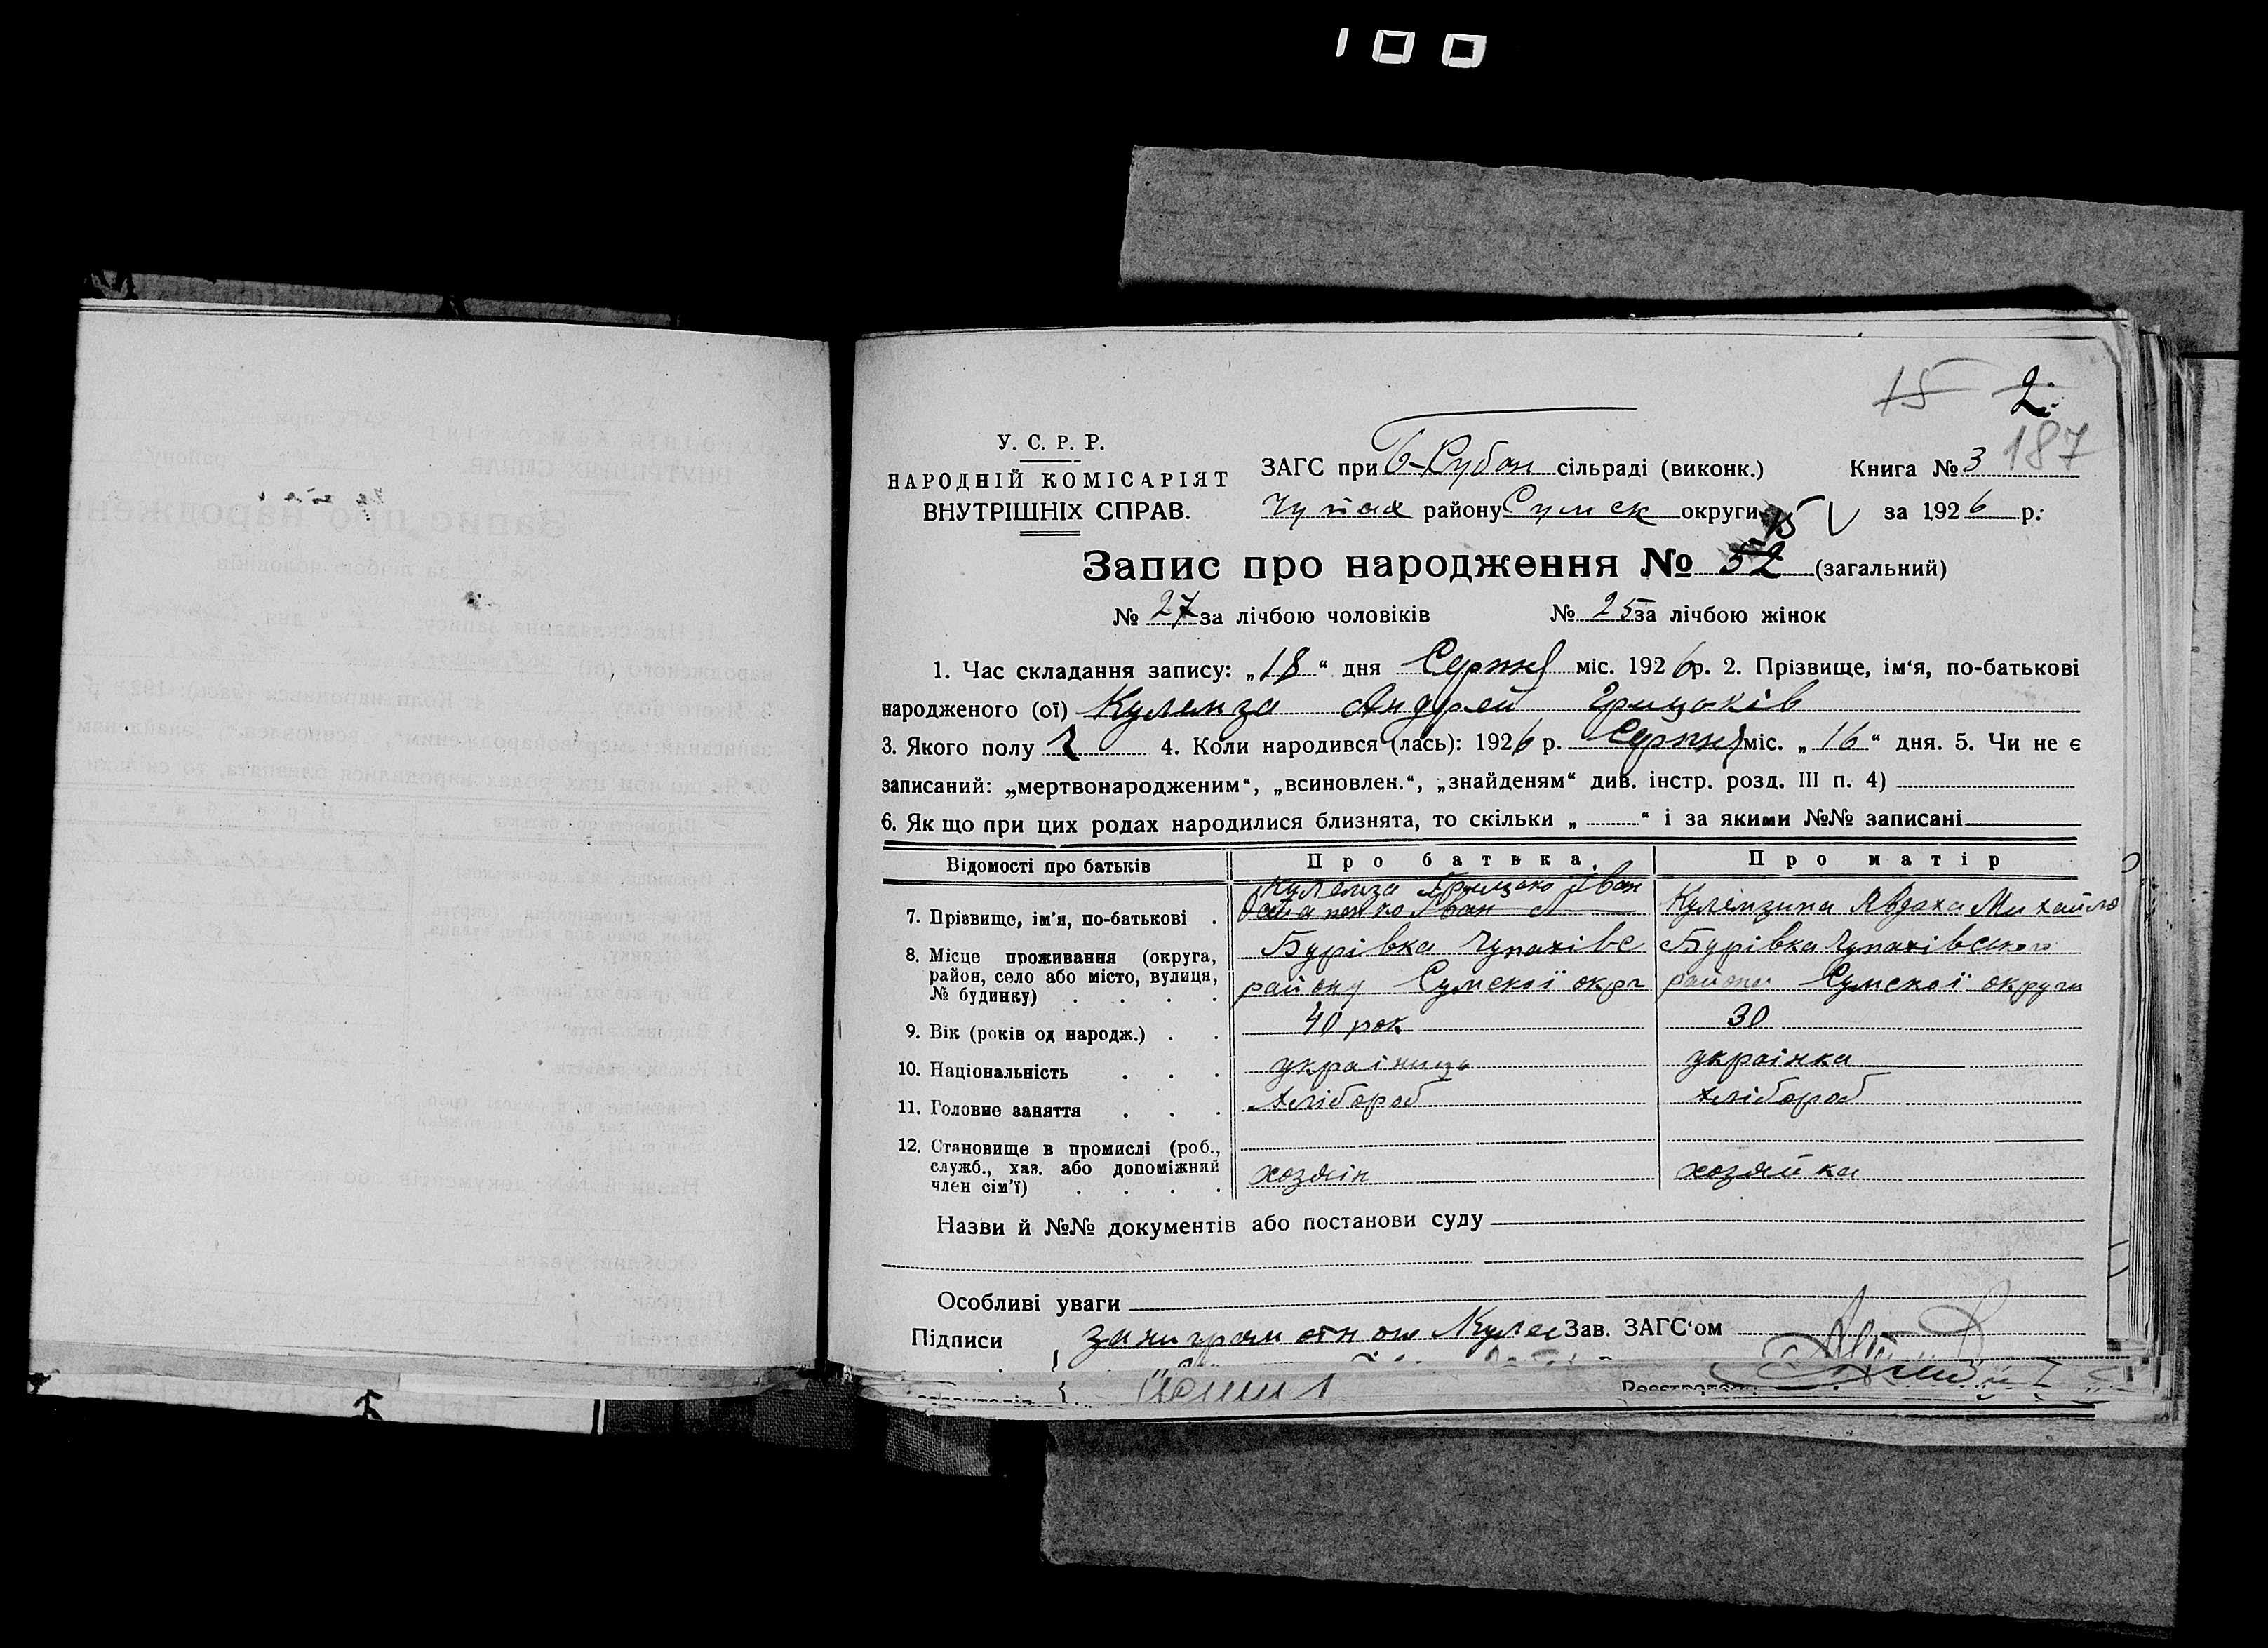 100
15 2
187
У. С. Р. Р.
НАРОДНІЙ КОМІСАРІЯТ
ВНУТРІШНІХ СПРАВ.
ЗАГС при Б-Рубан сільраді (виконк.) Книга № 3
Чупах району Сумск округи за 1926 р.
15 V
Запис про народження № 52 (загальний)
№ 27 за лічбою чоловіків № 25 за лічбою жінок
1. Час складання запису: „18“ дня Серпня міс. 1926 р. 2. Прізвище, ім‘я, по-батькові
народженого (ої) Кулемза Андрей Грицьків
3. Якого полу Ч 4. Коли народився (лась): 1926 р. Серпня міс. „16“ дня. 5. Чи не є
записаний: „мертвонародженим“, „всиновлен.“, „знайденям“ див. інстр. розд. III п. 4)
6. Як що при цих родах народилися близнята, то скільки „ “ і за якими №№ записані
Відомості про батьків Про батька. Про матір
Кулемза Грицько Іван
7. Прізвище, ім'я, по-батькові . Остапенко Іван Кулемзина Явдоха Михайло
8. Місце проживання (округа, Бурівка Чупахівс Бурівка Чупахівського
район, село або місто, вулиця, району Сумскої окрг району Сумскої округи
№ будинку) . . . .
9. Вік (років од народж.) . . 40 рок. 30
10. Національність . . . українць українка
11. Головне заняття . . . Хлібороб хлібороб
12. Становище в промислі (роб.,
служб., хаз. або допоміжний хозяін хозяйка
член сім'ї) . . . .
Назви й №№ документів або постанови суду
Особливі уваги
Підписи за ниграмотного Кулем Зав. ЗАГС‘ом
Реєстратор